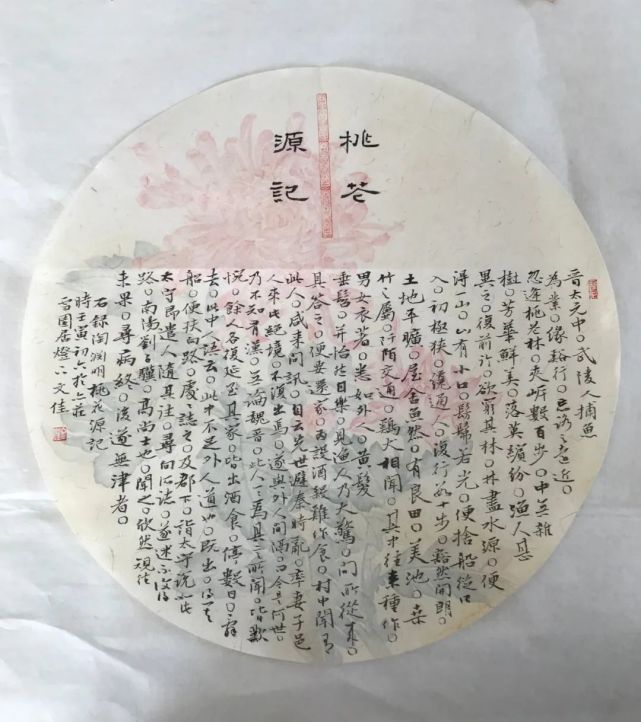 桃花
源記
晉太元中。武陵人捕魚
為業。緣谿行。忘路之遠近。
忽逢桃花林。夾岸數百步。中無雜
樹。芳華鮮美。落英繽紛。漁人甚
異之。復前行。欲窮其林。林盡水源。便
得一山。山有小口。髣髴若光。便捨船從口
入。初極狹。纔通人。復行數十步。豁然開朗。
土地平曠。屋舍儼然。有良田。美池。桑
竹之屬。阡陌交通。鷄犬相聞。其中往來種作。
男女衣著。悉如外人。黃髮
垂髫。並怡然自樂。見漁人乃大驚。問所從來。
具答之。便要還家。為設酒殺雞作食。村中聞有
此人。咸來問訊。自云先世避秦時亂。率妻子邑
人來此絕境。不復出焉。遂與外人間隔。問今是何世。
乃不知有漢。無論魏晉。此人一一為具言所聞。皆歎
惋。餘人各復延至其家。皆出酒食。停數日。辭
去。此中人語云。此中不足外人道也。既出。得其
船。便扶向路。處處誌之。及郡下。詣太守說如此
太守即遣人隨其往。尋向所誌。遂迷不復得
路。南陽劉子驥。高尚士也。聞之。欣然規往
未果。尋病終。後遂無津者。
右錄陶淵明桃花源記
時壬寅初六於六莊
雪園居燈下文佳